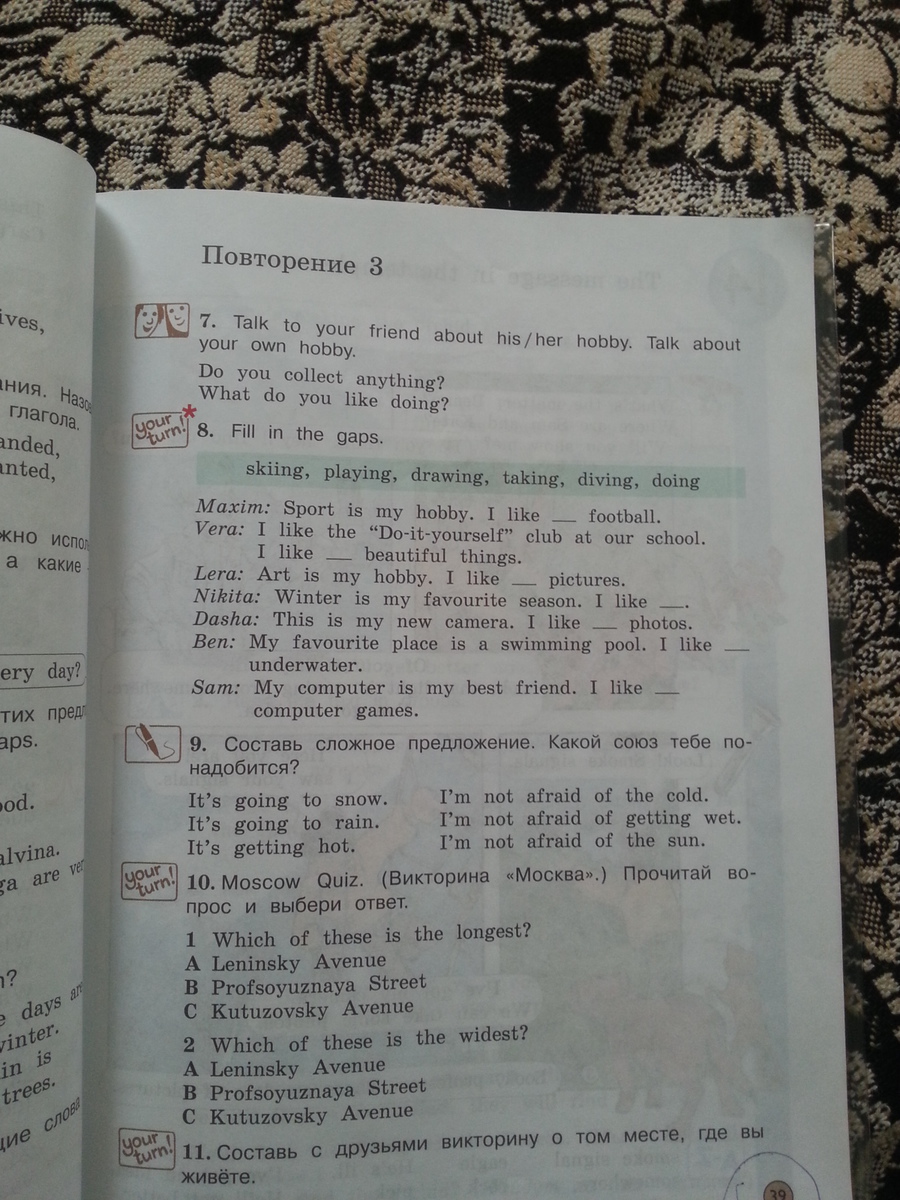 Повторение 3
7. Talk to your friend about his/her hobby. Talk about
your own hobby.
Do you collect anything?
What do you like doing?
your turn! *
8. Fill in the gaps.
skiing, playing, drawing, taking, diving, doing
Maxim: Sport is my hobby. I like __ football.
Vera: I like the “Do-it-yourself” club at our school.
I like __ beautiful things.
Lera: Art is my hobby. I like __ pictures.
Nikita: Winter is my favourite season. I like __.
Dasha: This is my new camera. I like __ photos.
Ben: My favourite place is a swimming pool. I like __
underwater.
Sam: My computer is my best friend. I like __
computer games.
9. Составь сложное предложение. Какой союз тебе по-
надобится?
It's going to snow. I'm not afraid of the cold.
It's going to rain. I'm not afraid of getting wet.
It's getting hot. I'm not afraid of the sun.
your turn!
10. Moscow Quiz. (Викторина «Москва».) Прочитай во-
прос и выбери ответ.
1 Which of these is the longest?
A Leninsky Avenue
B Profsoyuznaya Street
C Kutuzovsky Avenue
2 Which of these is the widest?
A Leninsky Avenue
B Profsoyuznaya Street
C Kutuzovsky Avenue
your turn!
11. Составь с друзьями викторину о том месте, где вы
живёте.
39
ives,
ания.
глагола.
anded,
anted,
а какие
ery day?
тих
aps.
ood.
alvina.
ga are
days
vinter.
in is
trees.
слова